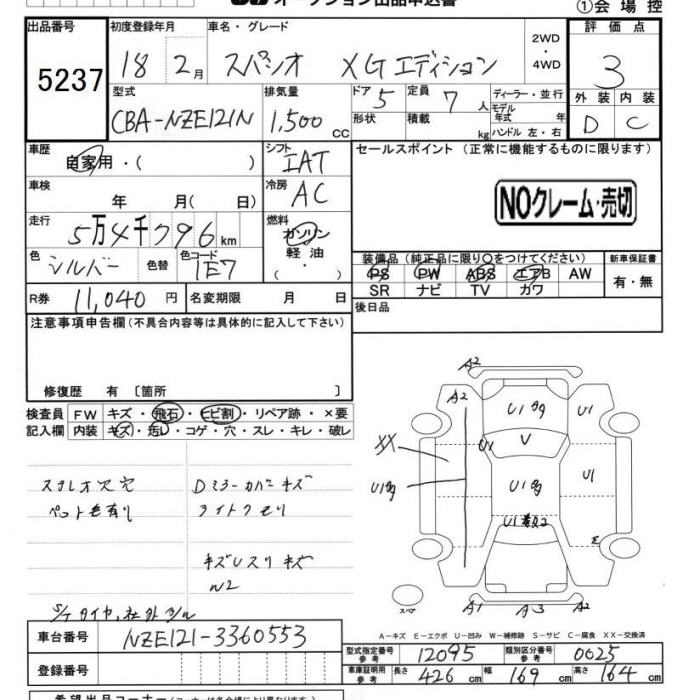 オークション出品申込書
①会場控
出品番号
5237
初度登録年月
18 2月
車名・グレード
スパシオ XGエディション
2WD
・
4WD
評価点
3
型式
CBA-NZE121N
排気量
1,500 cc
ドア
5
定員
7 人
ディーラー・並行
モデル年式 年
ハンドル 左・右
形状
積載 kg
外装 内装
D C
車歴
自家用・( )
シフト
IAT
セールスポイント (正常に機能するものに限ります)
車検
年 月( 日)
冷房
AC
NOクレーム・売切
走行
5万4千796km
燃料
ガソリン
軽油
・( )
色
シルバー
色替
色コード
1E7
装備品 (純正品に限り○をつけてください)
PS PW ABS エアB AW
SR ナビ TV カワ
新車保証書
有・無
R券
11,040 円
名変期限 月 日
後日品
注意事項申告欄(不具合内容等は具体的に記入して下さい)
修復歴 有 〔箇所 〕
検査員記入欄
FW キズ・飛石・ヒビ割・リペア跡・×要
内装 キズ・汚レ・コゲ・穴・スレ・キレ・破レ
ステレオ欠穴
ペット毛有り
Dミラーカバーキズ
ライトクモリ
キズUスリキズ
W2
S/Tタイヤ、社外アルミ
A2
A2
U1多
U1
U1
V
XX
U1多
U1多
U1
E
A1 A3 A2
スペア
A－キズ E－エクボ U－凹み W－補修跡 S－サビ C－腐食 XX－交換済
車台番号
NZE121-3360553
登録番号
型式指定番号 参考
12095
類別区分番号 参考
0025
車庫証明用 参考
長さ 426 cm
幅 169 cm
高さ 164 cm
希望出品コーナー